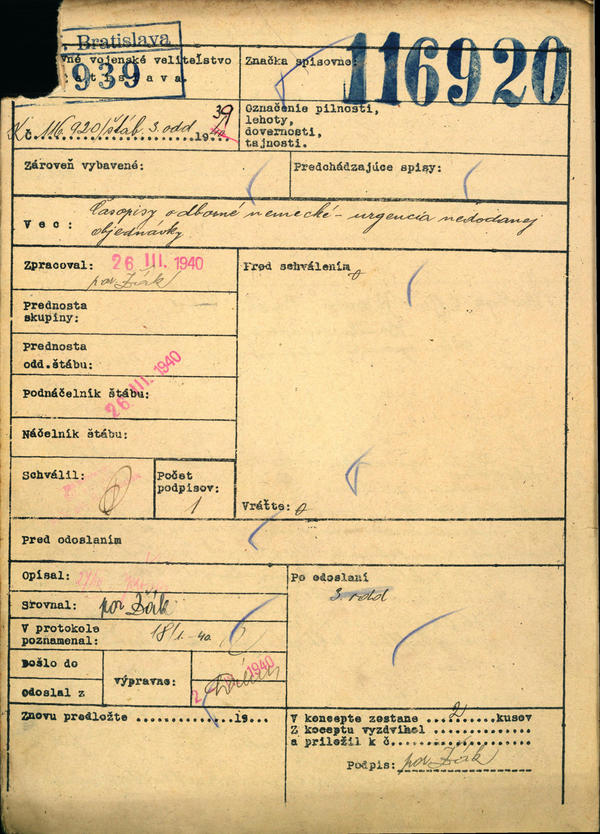 Bratislava
vojenské veliteľstvo
1939
Značka spisovne:
116920
K č. 116.920/štáb. 3. odd 1939
40
Označenie pilnosti,
lehoty,
dovernosti,
tajnosti.
Zároveň vybavené:
Predchádzajúce spisy:
Vec: Časopisy odborné nemecké - urgencia nedodanej
objednávky
Zpracoval: 26 III. 1940
por. Žák
Pred schválením
Prednosta
skupiny:
Prednosta
odd.štábu:
26 III. 1940
Podnáčelník štábu:
Náčelník štábu:
Schválil:
Počet
podpisov:
1
Vráťte: 0
Pred odoslaním
Opísal:
Po odoslaní
3. odd
Srovnal: por Žák
V protokole
poznamenal:
Došlo do
výpravne:
odoslal z
1940
Znovu predložte ............. 19...
V koncepte zostane ..2..kusov
Z koceptu vyzdvihol ..............
a priložil k č...................
Podpis: por Žák